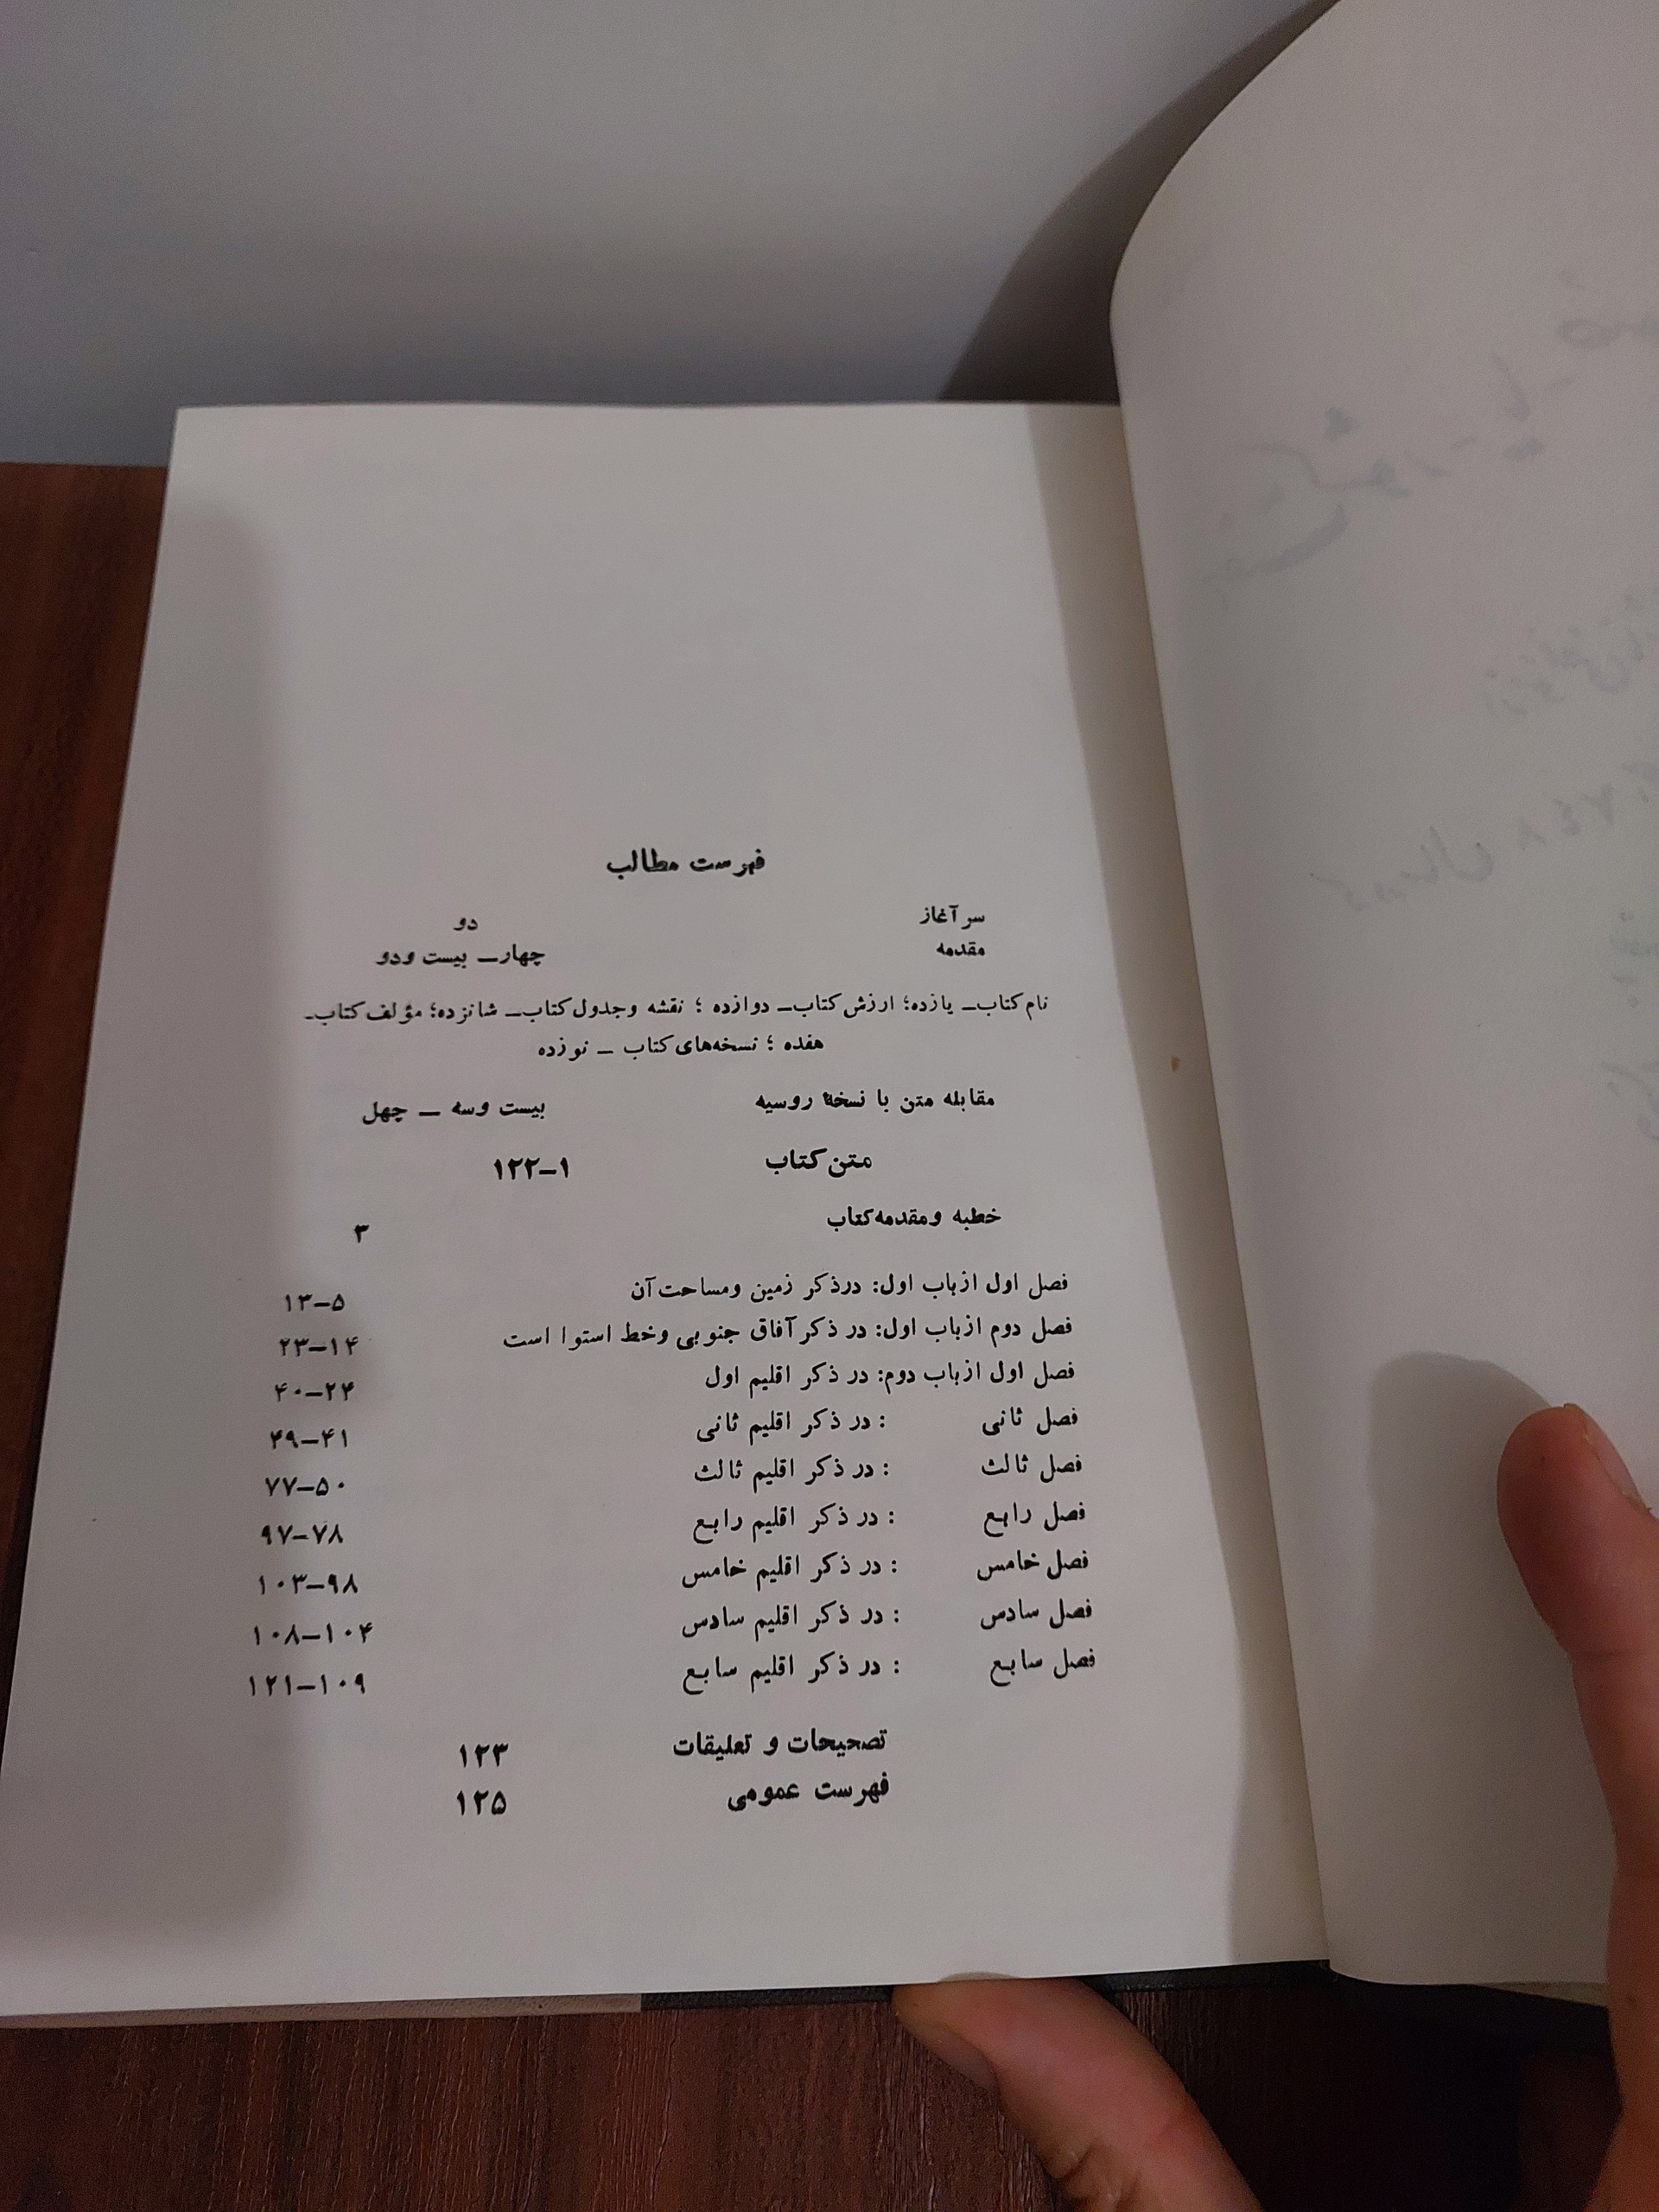 فهرست مطالب
سر آغاز دو
مقدمه چهار— بیست ودو
نام کتاب— یازده؛ ارزش کتاب— دوازده ؛ نقشه وجدول کتاب— شانزده؛ مؤلف کتاب-
هفده ؛ نسخه‌های کتاب — نوزده
مقابله متن با نسخهٔ روسیه بیست وسه — چهل
متن کتاب ۱—۱۲۲
خطبه ومقدمه کتاب ۳
فصل اول ازباب اول: درذکر زمین ومساحت آن ۵—۱۳
فصل دوم ازباب اول: در ذکر آفاق جنوبی وخط استوا است ۱۴—۲۳
فصل اول ازباب دوم: در ذکر اقلیم اول ۲۴—۴۰
فصل ثانی : در ذکر اقلیم ثانی ۴۱—۴۹
فصل ثالث : در ذکر اقلیم ثالث ۵۰—۷۷
فصل رابع : در ذکر اقلیم رابع ۷۸—۹۷
فصل خامس : در ذکر اقلیم خامس ۹۸—۱۰۳
فصل سادس : در ذکر اقلیم سادس ۱۰۴—۱۰۸
فصل سابع : در ذکر اقلیم سابع ۱۰۹—۱۲۱
تصحیحات و تعلیقات ۱۲۳
فهرست عمومی ۱۲۵